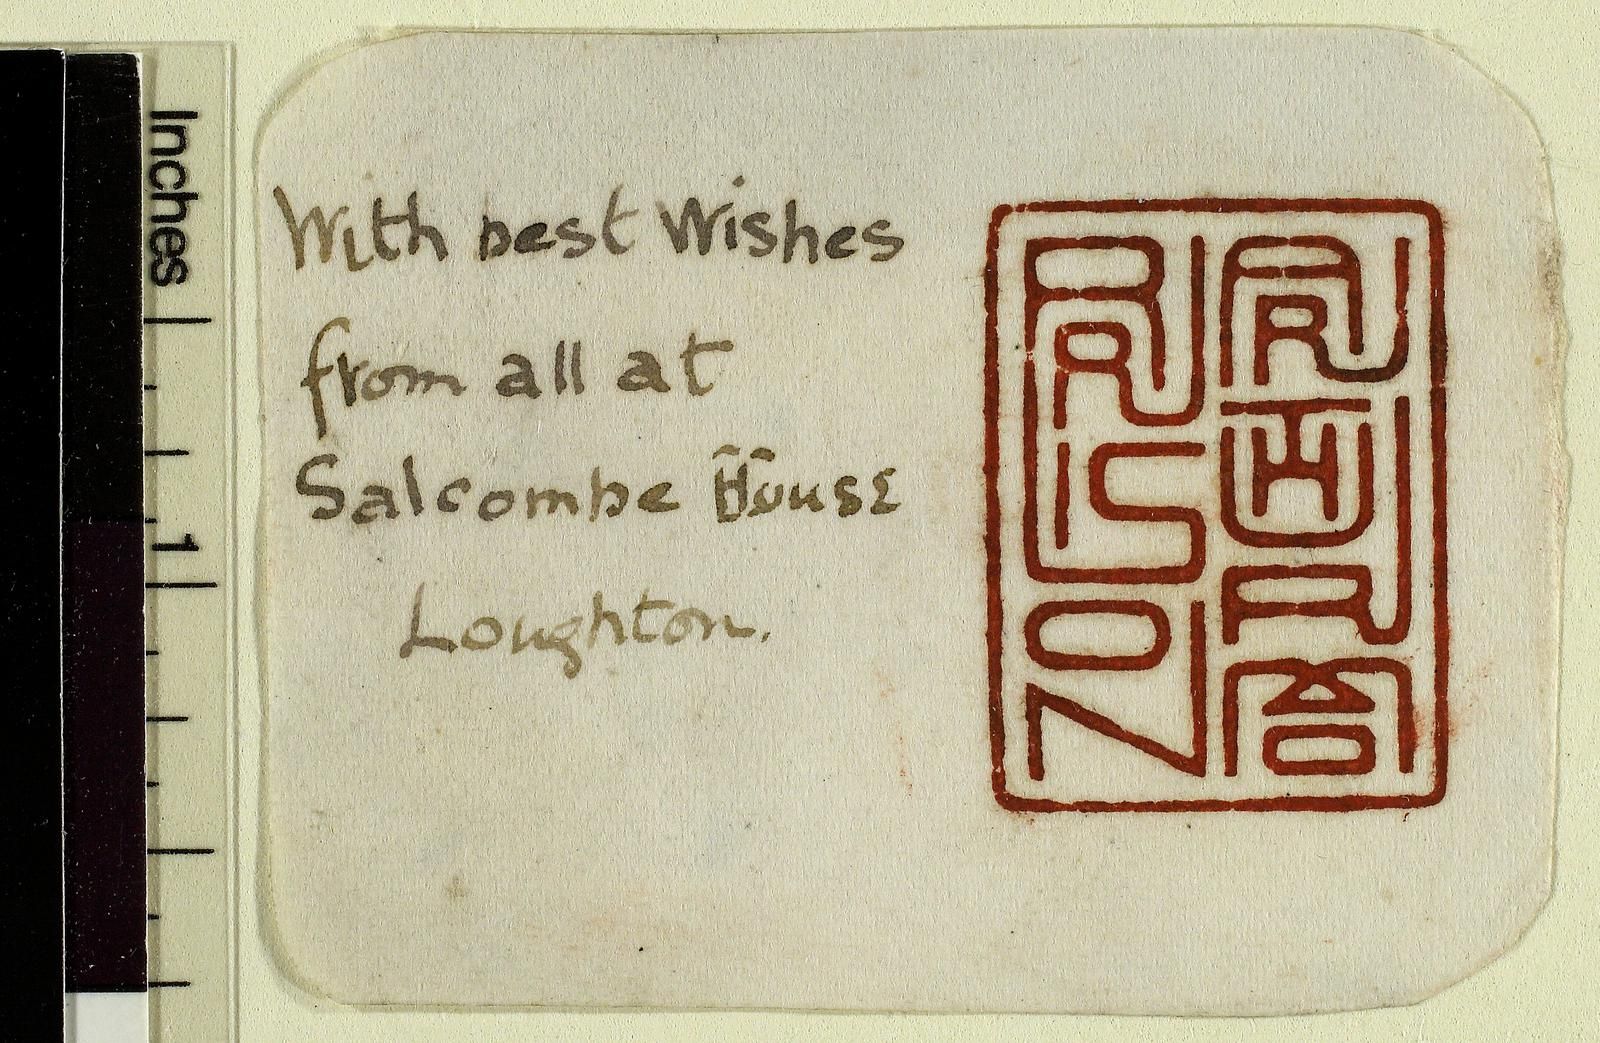 Inches
1
With best Wishes
from all at
Salcombe House
Loughton.
ARTHUR MO
RRISON